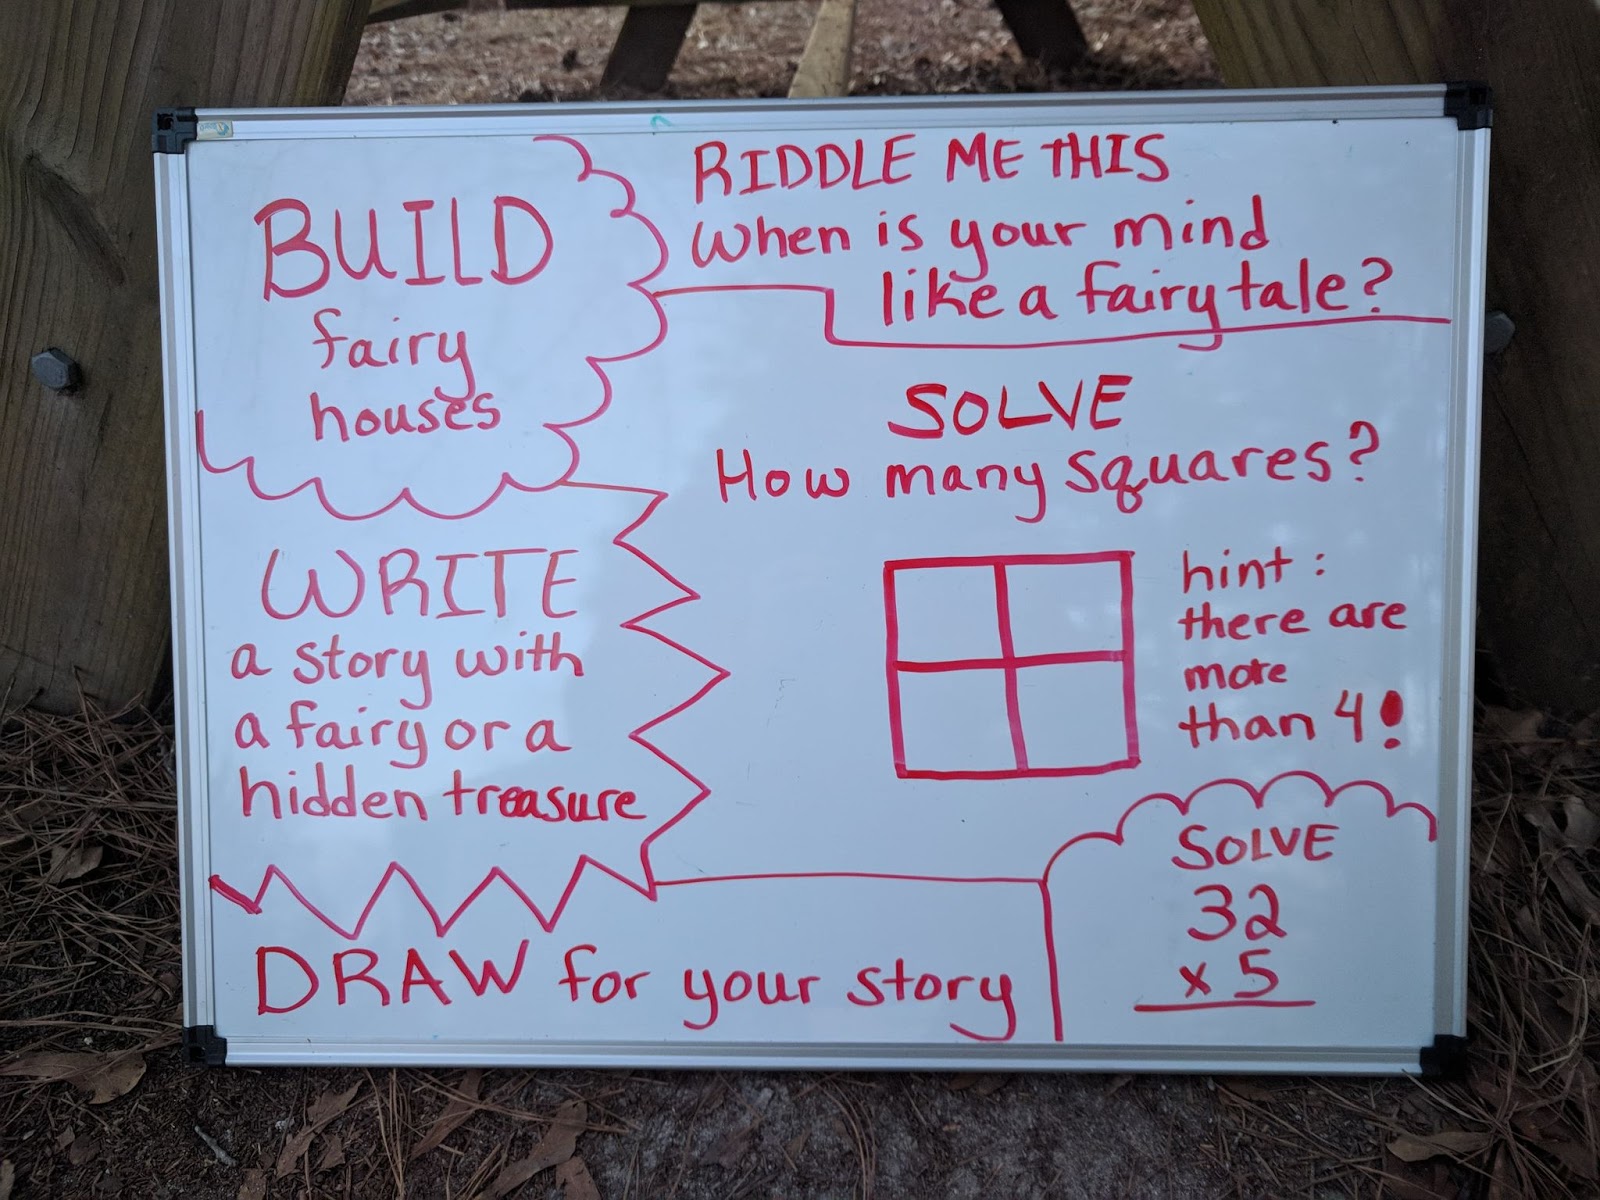 BUILD
fairy
houses
RIDDLE ME THIS
When is your mind
like a fairy tale?
SOLVE
How many squares?
hint:
there are
more
than 4!
WRITE
a story with
a fairy or a
hidden treasure
DRAW for your story
SOLVE
32
x 5